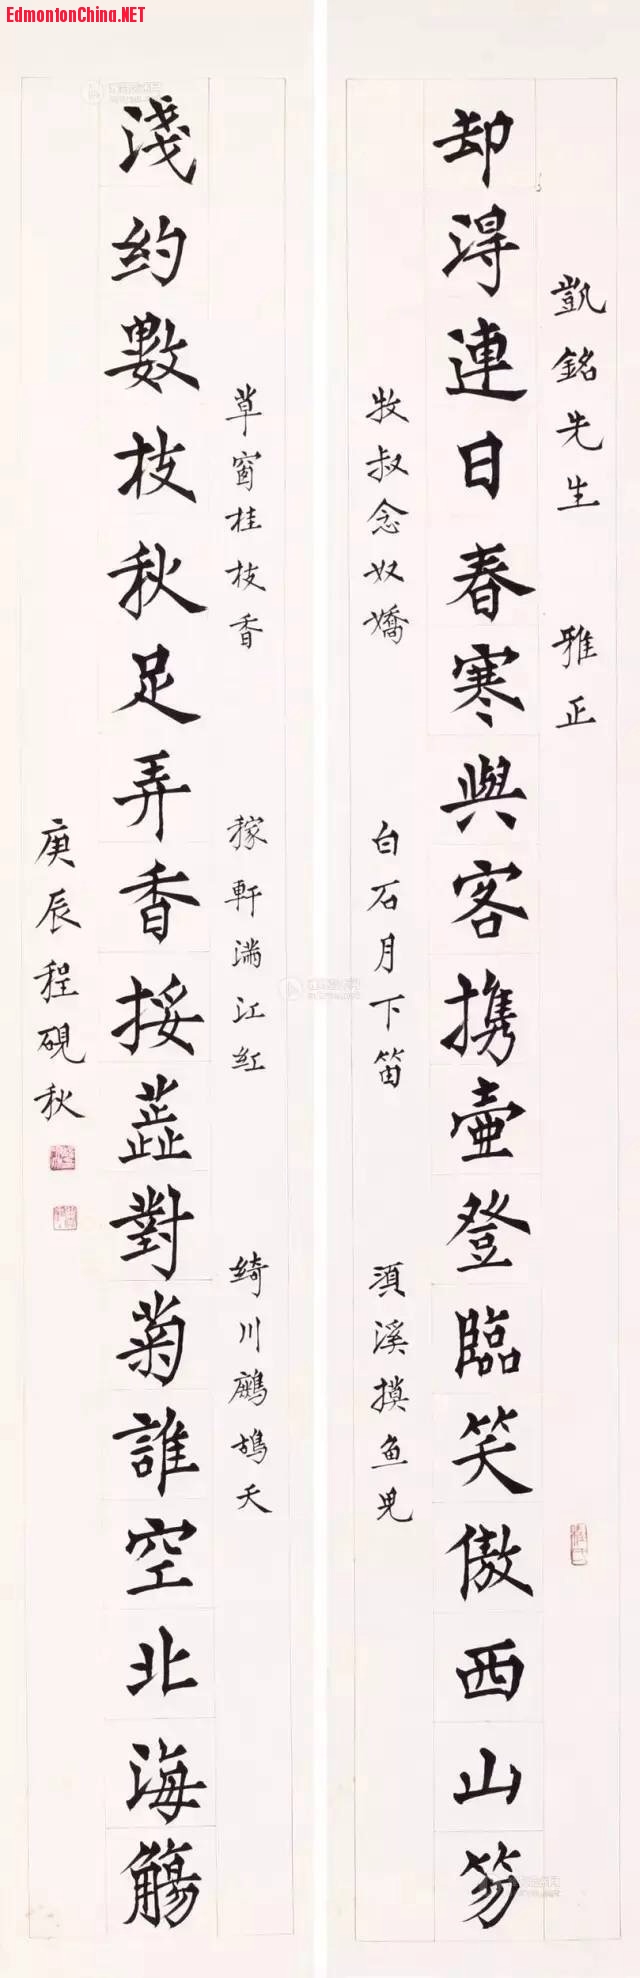 EdmontonChina.NET
凱銘先生 雅正
却得連日春寒與客携壺登臨笑傲西山笏
牧叔念奴嬌 白石月下笛 湏溪摸魚兒
草窗桂枝香 稼軒滿江紅 綺川鷓鴣天
淺約數枝秋足弄香挼蕋對菊誰空北海觴
庚辰程硯秋